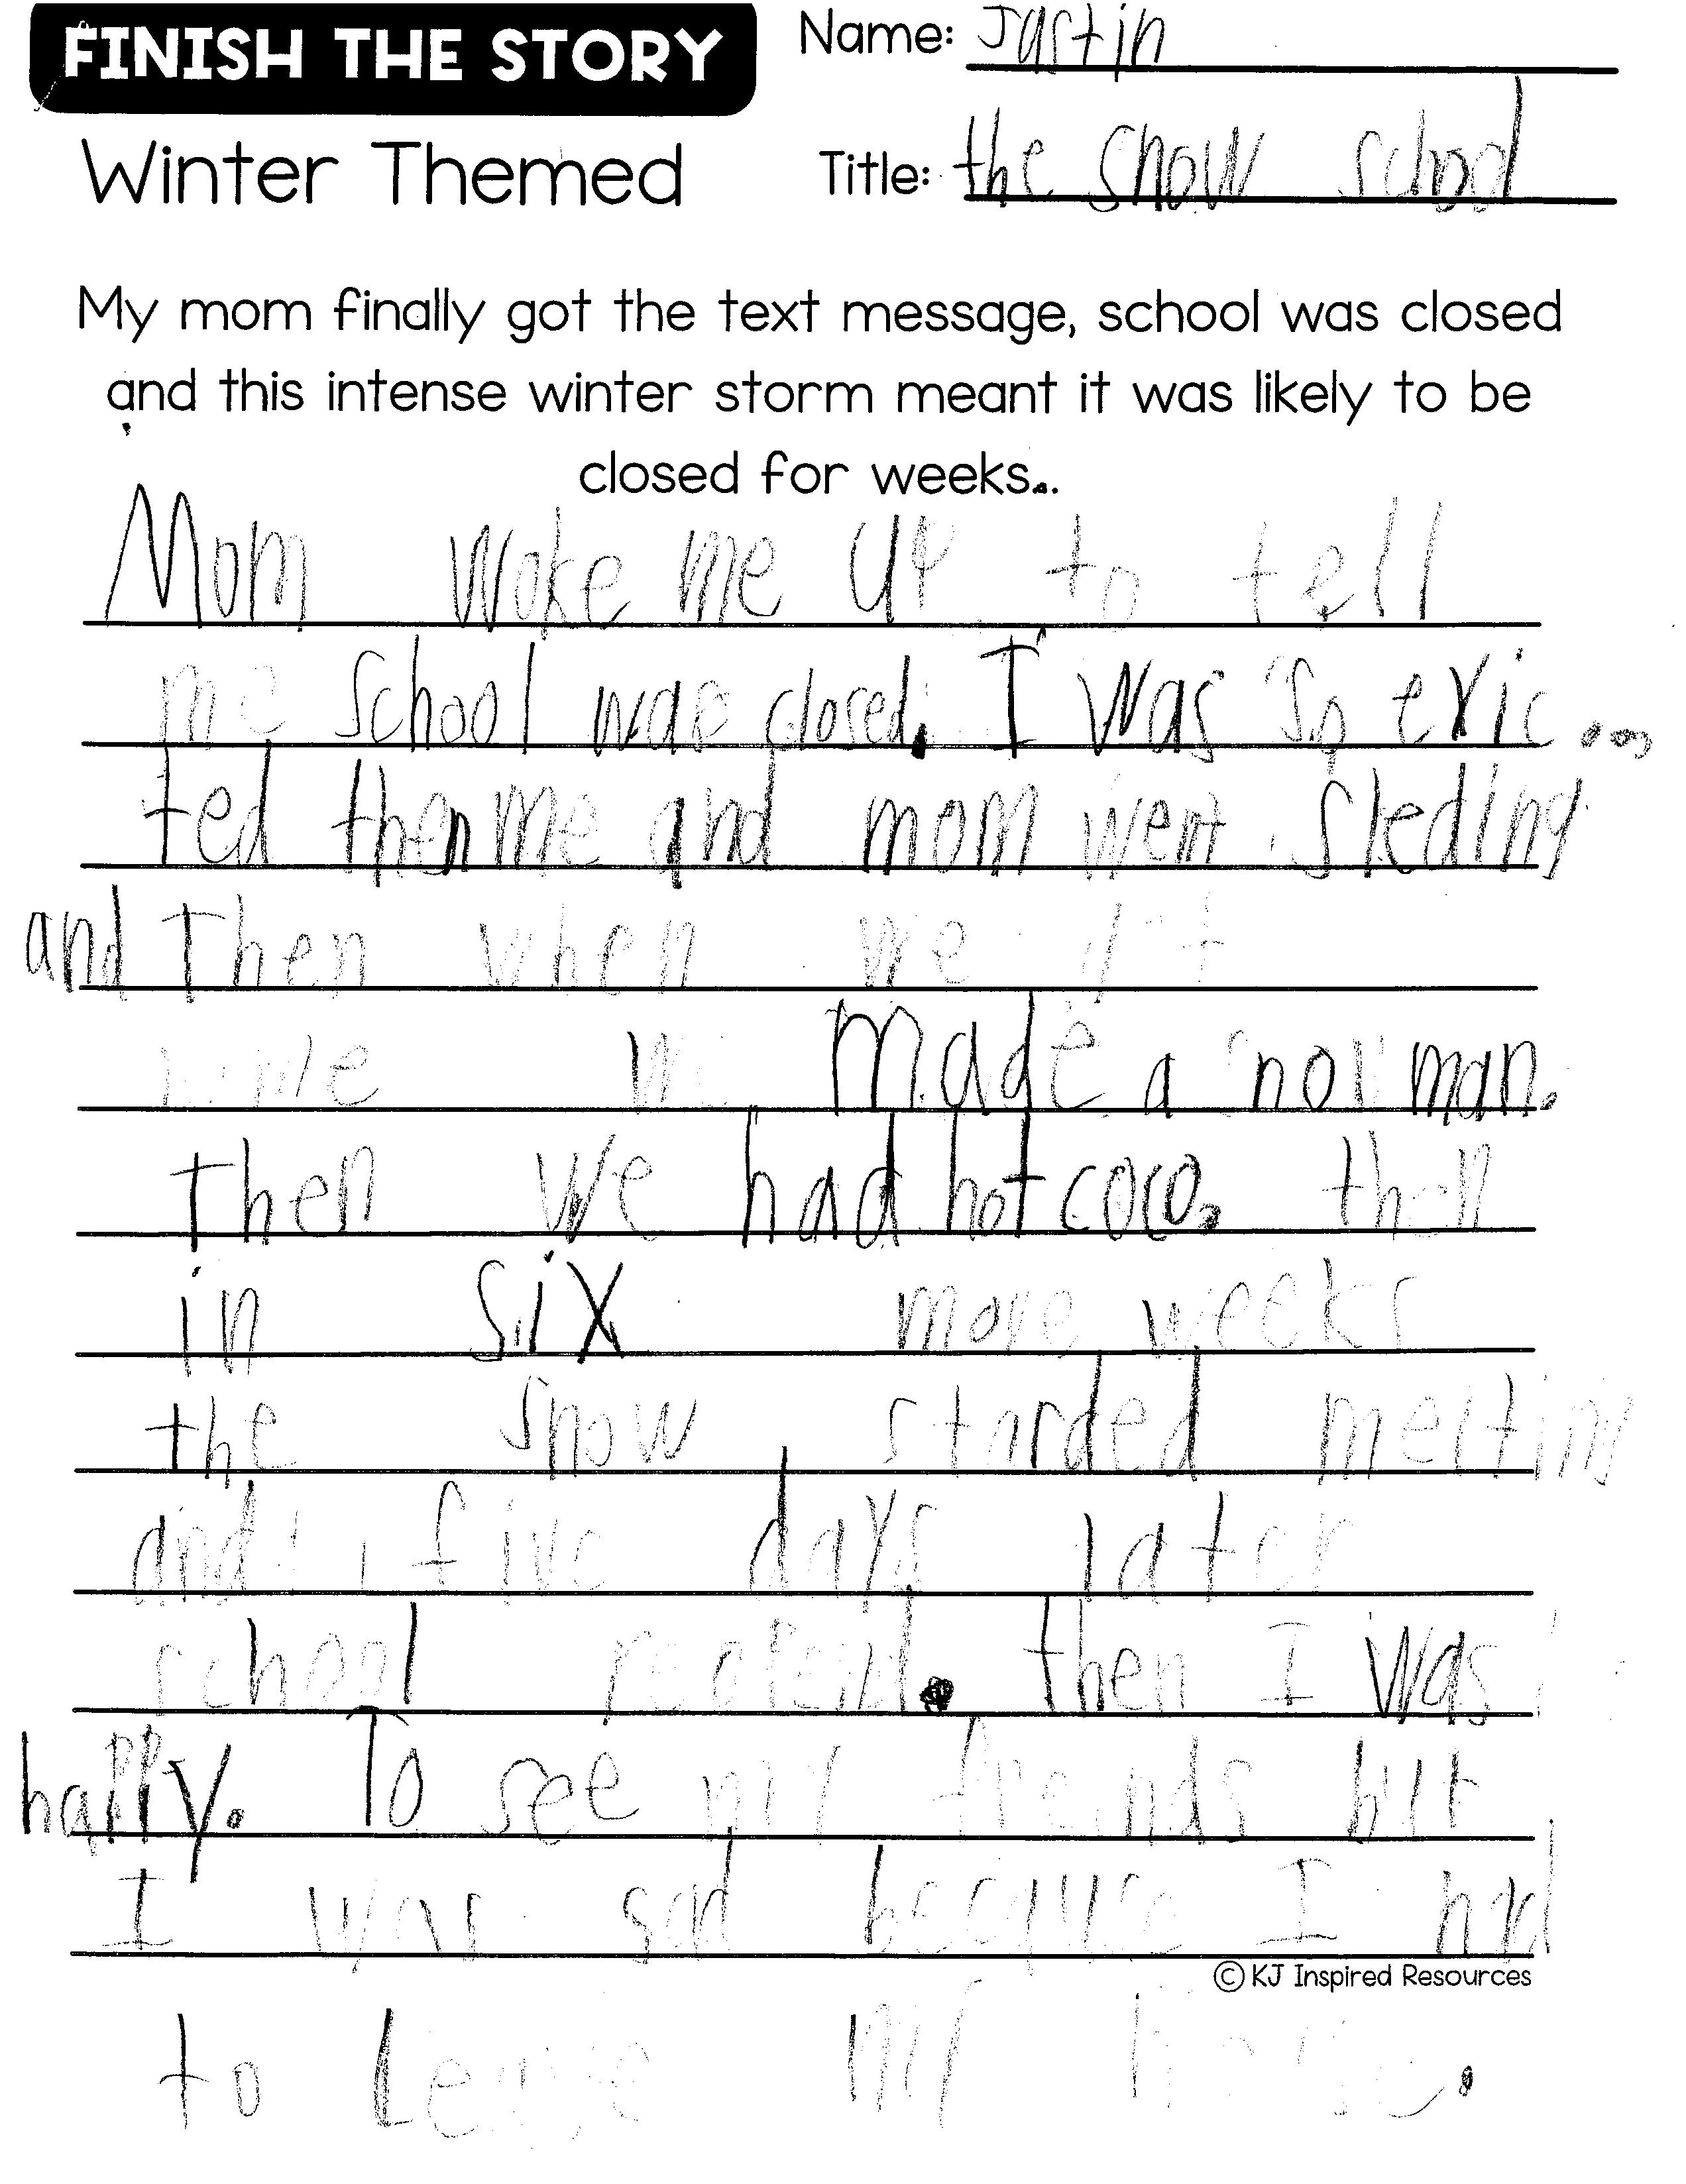 FINISH THE STORY
Name: Jastin
Winter Themed
Title: the snow school
My mom finally got the text message, school was closed
and this intense winter storm meant it was likely to be
closed for weeks...
Mom woke me up to tell
me school was closed. I was so exic...
ted then me and mom went sleding
and then when we
made a man.
then we had hot coco. then
in six more weeks
the snow starded melting
and five days later
school then I was
happy. To see my freinds but
I was sad because I had
© KJ Inspired Resources
to leave my